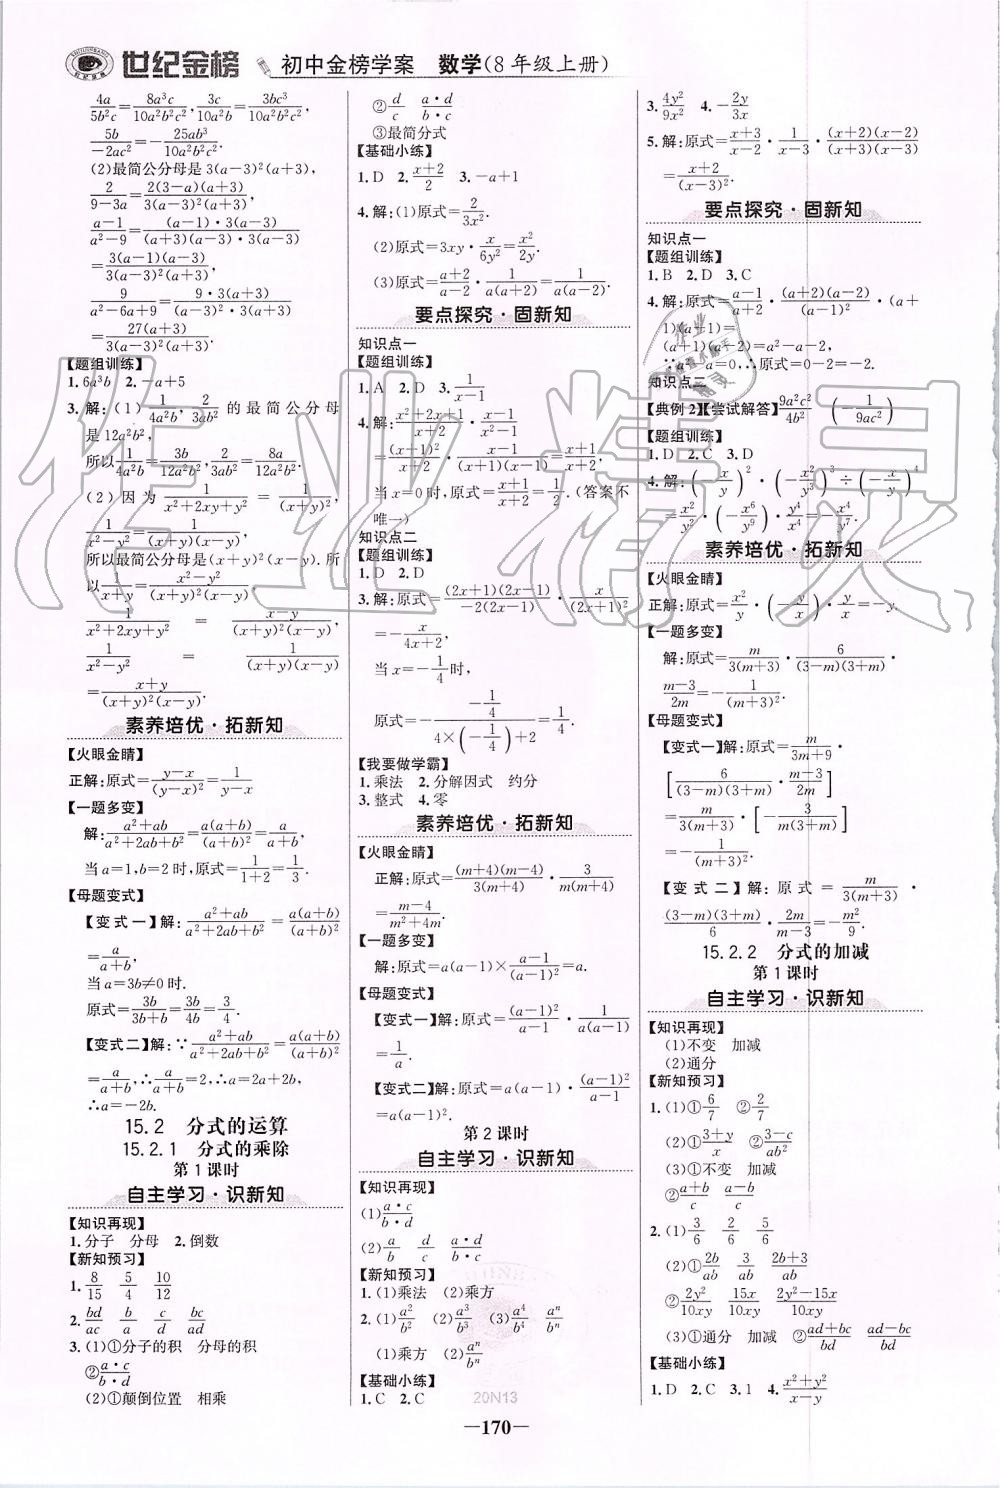 世纪金榜 初中金榜学案 数学(8年级上册)
4a/5b²c=8a³c/10a²b²c²,3c/10a²b=3bc³/10a²b²c²,
5b/-2ac²=-25ab³/10a²b²c².
(2)最简公分母是3(a-3)²(a+3),
2/9-3a=2(3-a)(a+3)/3(a-3)²(a+3),
a-1/a²-9=(a-1)·3(a-3)/(a+3)(a-3)·3(a-3)
=3(a-1)(a-3)/3(a-3)²(a+3),
9/a²-6a+9=9·3(a+3)/(a-3)²·3(a+3)
=27(a+3)/3(a-3)²(a+3).
【题组训练】
1.6a³b 2.-a+5
3.解:(1)1/4a²b,2/3ab²的最简公分母
是12a²b²,
所以1/4a²b=3b/12a²b²,2/3ab²=8a/12a²b².
(2)因为1/x²+2xy+y²=1/(x+y)²,
1/x²-y²=1/(x+y)(x-y),
所以最简公分母是(x+y)²(x-y).所
以1/x+y=x²-y²/(x+y)²(x-y),
1/x²+2xy+y²=x-y/(x+y)²(x-y),
1/x²-y²=1/(x+y)(x-y)
=x+y/(x+y)²(x-y).
素养培优·拓新知
【火眼金睛】
正解:原式=y-x/(y-x)²=1/y-x
【一题多变】
解:a²+ab/a²+2ab+b²=a(a+b)/(a+b)²=a/a+b,
当a=1,b=2时,原式=1/1+2=1/3.
【母题变式】
【变式一】解:a²+ab/a²+2ab+b²=a(a+b)/(a+b)²=
a/a+b,
当a=3b≠0时.
原式=3b/3b+b=3b/4b=3/4
【变式二】解:∵a²+ab/a²+2ab+b²=a(a+b)/(a+b)²=
a/a+b,∴a/a+b=2,∴a=2a+2b,
∴a=-2b.
15.2 分式的运算
15.2.1 分式的乘除
第1课时
自主学习·识新知
【知识再现】
1.分子 分母 2.倒数
【新知预习】
1.8/15 5/4 10/12
2.bd/ac d/a c/b bc/ad
3.(1)①分子的积 分母的积
②a·c/b·d
(2)①颠倒位置 相乘
②d/c a·d/b·c
③最简分式
【基础小练】
1.D 2.x+2/2 3.-a+1
4.解:(1)原式=2/3x².
(2)原式=3xy·x/6y²=x²/2y.
(3)原式=a+2/a-2·1/a(a+2)=1/a(a-2).
要点探究·固新知
知识点一
【题组训练】
1.A 2.D 3.1/x-1
4.解:x²+2x+1/x+2·x-1/x²-1
=(x+1)²/x+2·x-1/(x+1)(x-1)=x+1/x+2,
当x=0时,原式=x+1/x+2=1/2.(答案不
唯一)
知识点二
【题组训练】
1.D 2.D
3.解:原式=(2x+1)(2x-1)/-2(2x-1)·x/(2x+1)²
=-x/4x+2,
当x=-1/4时,
原式=--1/4/4×(-1/4)+2=1/4.
【我要做学霸】
1.乘法 2.分解因式 约分
3.整式 4.零
素养培优·拓新知
【火眼金睛】
正解:原式=(m+4)(m-4)/3(m+4)·3/m(m+4)
=m-4/m²+4m.
【一题多变】
解:原式=a(a-1)×a-1/(a-1)²=a.
【母题变式】
【变式一】解:原式=(a-1)²/a-1·1/a(a-1)
=1/a.
【变式二】解:原式=a(a-1)·(a-1)²/a-1
=a(a-1)².
第2课时
自主学习·识新知
【知识再现】
(1)a·c/b·d
(2)a/b d/c a·d/b·c
【新知预习】
1.(1)乘法 (2)乘方
2.(1)a²/b² (2)a³/b³ (3)a⁴/b⁴ aⁿ/bⁿ
(1)乘方 (2)aⁿ/bⁿ
【基础小练】
1.C 2.C
3.4y²/9x² 4.-2y/3x
5.解:原式=x+3/x-2·1/x-3·(x+2)(x-2)/(x+3)(x-3)=
x+2/(x-3)².
要点探究·固新知
知识点一
【题组训练】
1.B 2.D 3.C
4.解:原式=a-1/a+2·(a+2)(a-2)/(a-1)²·(a+
1)(a-1)=
(a+1)(a-2)=a²-a-2.
∵a²-a=0,∴原式=0-2=-2.
知识点二
【典例2】【尝试解答】9a²c²/4b² (-1/9ac²)
【题组训练】
1.D 2.C 3.D
4.解:(-x/y)²·(-x²/y³)³÷(-x/y)⁴
=x²/y²·(-x⁶/y⁹)·y⁴/x⁴=-x⁴/y⁷.
素养培优·拓新知
【火眼金睛】
正解:原式=x²/y·(-y/x)·y/x=-y.
【一题多变】
解:原式=m/3(m+3)·6/(3-m)(3+m)·
m-3/2m=-1/(m+3)².
【母题变式】
【变式一】解:原式=m/3m+9·
[6/(3-m)(3+m)·m-3/2m]
=m/3(m+3)·[-3/m(3+m)]
=-1/(m+3)².
【变式二】解:原式=m/3(m+3)·
(3-m)(3+m)/6·2m/m-3=-m²/9.
15.2.2 分式的加减
第1课时
自主学习·识新知
【知识再现】
(1)不变 加减
(2)通分
【新知预习】
1.(1)①6/7 ②2/7
(2)①3+y/x ②3-c/ab²
(3)①不变 加减
②a+b/c a-b/c
2.(1)3/6 2/6 5/6
(2)①2b/ab 3/ab 2b+3/ab
②2y²/10xy 15x/10xy 2y²-15x/10xy
(3)①通分 加减 ②ad+bc/bd ad-bc/bd
【基础小练】
1.D 2.C 3.1 4.x²+y²/x-y
20N13
—170—
作业精灵